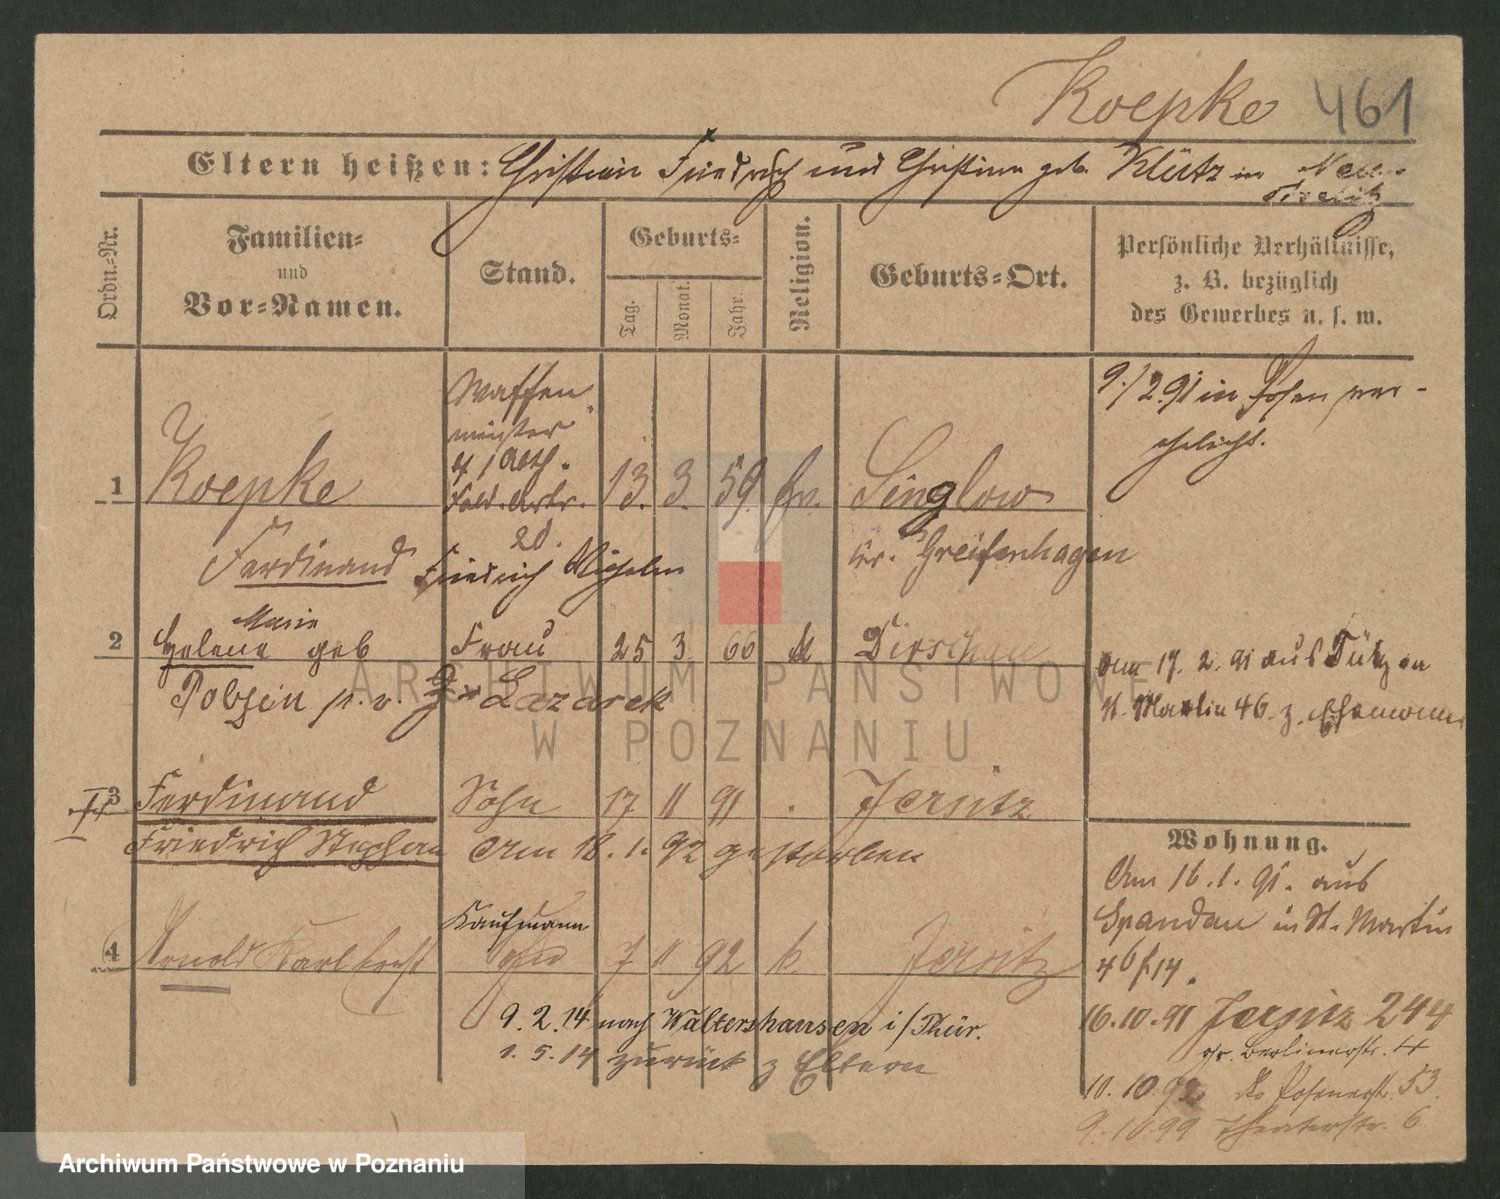 Koepke 461
Eltern heißen: Christian Friedrich und Christine geb. Klütz in Neu-
Ordn.-Nr.
Familien-
und
Vor-Namen.
Stand.
Geburts-
Tag.
Monat.
Jahr.
Religion.
Geburts-Ort.
Persönliche Verhältnisse,
z. B. bezüglich
des Gewerbes u. s. w.
9./2.91 in Posen ver-
ehelicht.
Waffen
meister
1 Koepke Feld. Artr. 13. 3. 59. ev. Singlow
20.
Ferdinand Friedrich Wilhelm Kr. Greifenhagen
Marie
2 Helene geb Frau 25 3 66 k Dirschau
am 17. 2. 91 aus
St. Martin 46 z. Ehemann
p. v. Lazarek
3 Ferdinand Sohn 17 11 91 . Jersitz
Friedrich Stephan Am 18. 1. 92 gestorben
Wohnung.
Am 16. 1. 91. aus
Spandau in St. Martin
46 f. 14.
Kaufmann
4 Arnold Karl 7 11 92 k. Jersitz
9. 2. 14 nach Waltershausen i/Thür.
1. 5. 14 zurück z Eltern
16.10.91 Jersitz 244
gr. Berlinerstr. 44
10. 10 92 do Posenerstr. 53
9. 10 99 Theaterstr. 6
ARCHIWUM PAŃSTWOWE
W POZNANIU
Archiwum Państwowe w Poznaniu